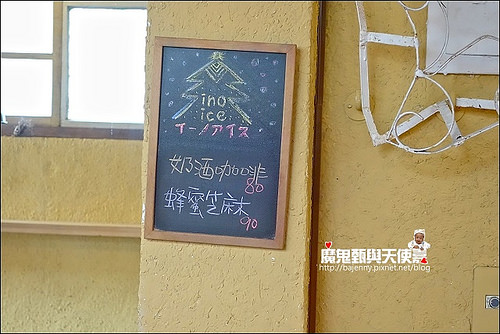 ino
ice
イーノアイス
奶酒咖啡
80
蜂蜜芝麻
90
魔鬼甄與天使嘉
http://bajenny.pixnet.net/blog